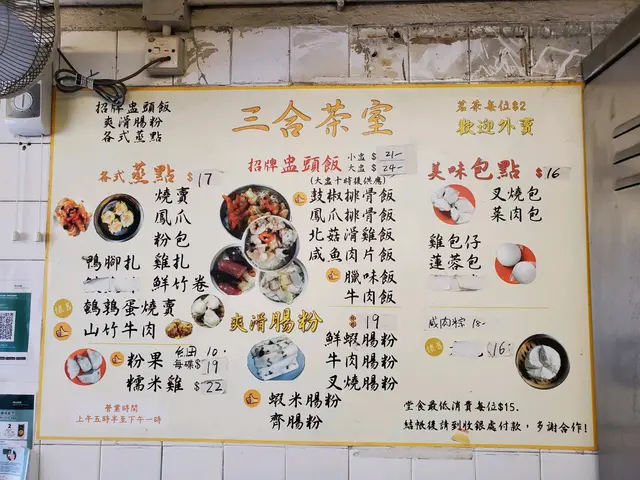 招牌盅頭飯
爽滑腸粉
各式蒸點
三合茶室
茗茶每位$2
歡迎外賣
各式蒸點 $17
燒賣
鳳爪
粉包
鴨腳扎 雞扎
鮮竹卷
鵪鶉蛋燒賣
山竹牛肉
粉果 每碟$19
10.
糯米雞 $22
營業時間
上午五時半至下午一時
招牌盅頭飯
小盅 $21-
大盅 $24-
(大盅十時後供應)
鼓椒排骨飯
鳳爪排骨飯
北菇滑雞飯
咸魚肉片飯
臘味飯
牛肉飯
爽滑腸粉 19
鮮蝦腸粉
牛肉腸粉
叉燒腸粉
蝦米腸粉
齊腸粉
美味包點 $16
叉燒包
菜肉包
雞包仔
蓮蓉包
咸肉粽 18-
16
堂食最低消費每位$15.
結帳後請到收銀處付款，多謝合作!